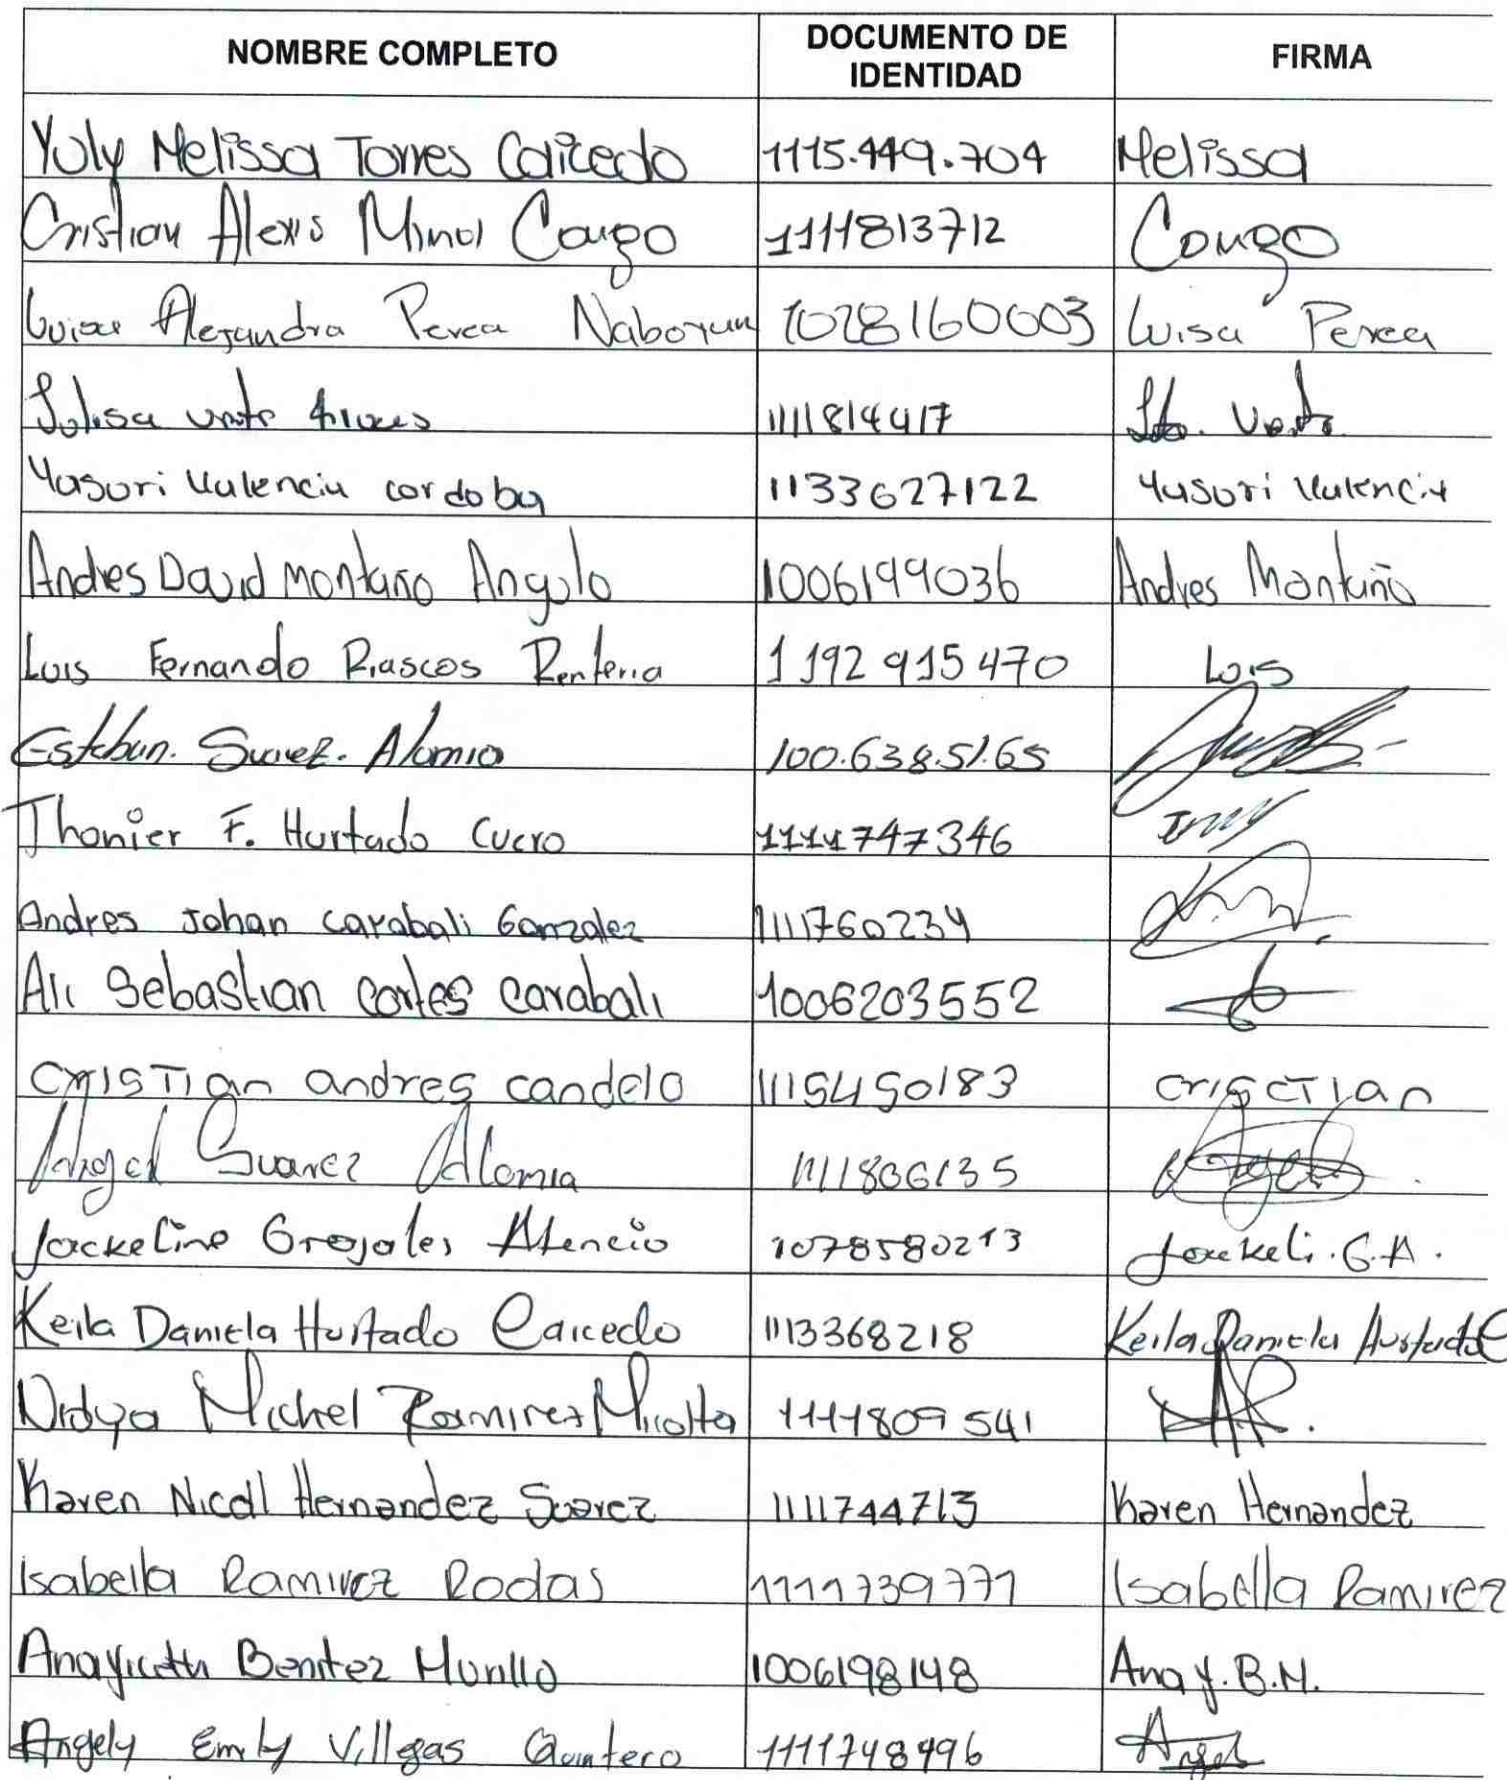 NOMBRE COMPLETO DOCUMENTO DE IDENTIDAD FIRMA
Yuly Melissa Torres Caicedo 1115.449.704 Melissa
Cristian Alexis Minol Congo 1111813712 Congo
Luisa Alejandra Perea Naboyan 1028160003 Luisa Perea
1111814417
Yusuri Valencia cordoba 1133627122 Yusuri Valencia
Andres David Montaño Angulo 1006199036 Andres Montaño
Luis Fernando Riascos Renteria 1192915470 Luis
Esteban. Suarez. Alomia 100.638.51.65
Jhonier F. Hurtado Cuero 1111747346
Andres Johan Carabali Gonzalez 1111760234
Ali Sebastian Cortes Carabali 1006203552
CRISTIan andres candelo 1115450183 CrisCTIan
Angel Suarez Alomia 1111806135 Angel
Jackeline Grajales Atencio 1078580213 Jackeli. G.A.
Keila Daniela Hurtado Caicedo 1113368218 Keila Daniela Hurtado C
Nidya Michel Ramirez Micolta 1111809541
Karen Nicoll Hernandez Suarez 1111744713 Karen Hernandez
Isabella Ramirez Rodas 1111739771 Isabella Ramirez
Benitez Murillo 1006198148 Ana y. B.M.
Angely Emily Villegas Quintero 1111748496 Angel